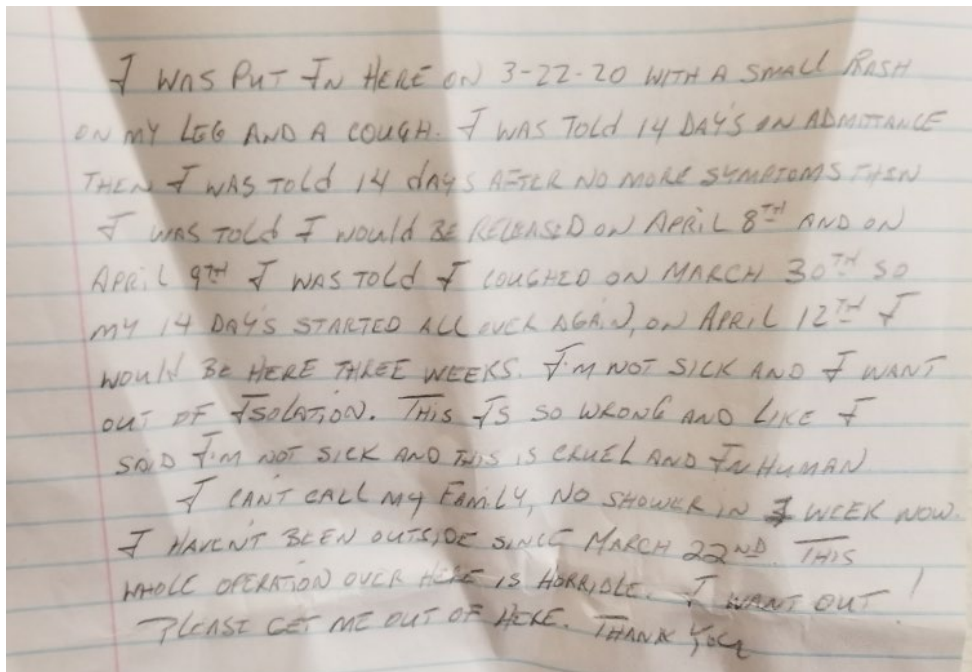 I WAS PUT IN HERE ON 3-22-20 WITH A SMALL RASH
ON MY LEG AND A COUGH. I WAS TOLD 14 DAY'S ON ADMITTANCE
THEN I WAS TOLD 14 DAYS AFTER NO MORE SYMPTOMS THEN
I WAS TOLD I WOULD BE RELEASED ON APRIL 8TH AND ON
APRIL 9TH I WAS TOLD I COUGHED ON MARCH 30TH SO
MY 14 DAY'S STARTED ALL OVER AGAIN, ON APRIL 12TH I
WOULD BE HERE THREE WEEKS. I'M NOT SICK AND I WANT
OUT OF ISOLATION. THIS IS SO WRONG AND LIKE I
SAID I'M NOT SICK AND THIS IS CRUEL AND INHUMAN
I CAN'T CALL MY FAMILY, NO SHOWER IN 1 WEEK NOW.
I HAVEN'T BEEN OUTSIDE SINCE MARCH 22ND. THIS
WHOLE OPERATION OVER HERE IS HORRIBLE. I WANT OUT!
PLEASE GET ME OUT OF HERE. THANK YOU